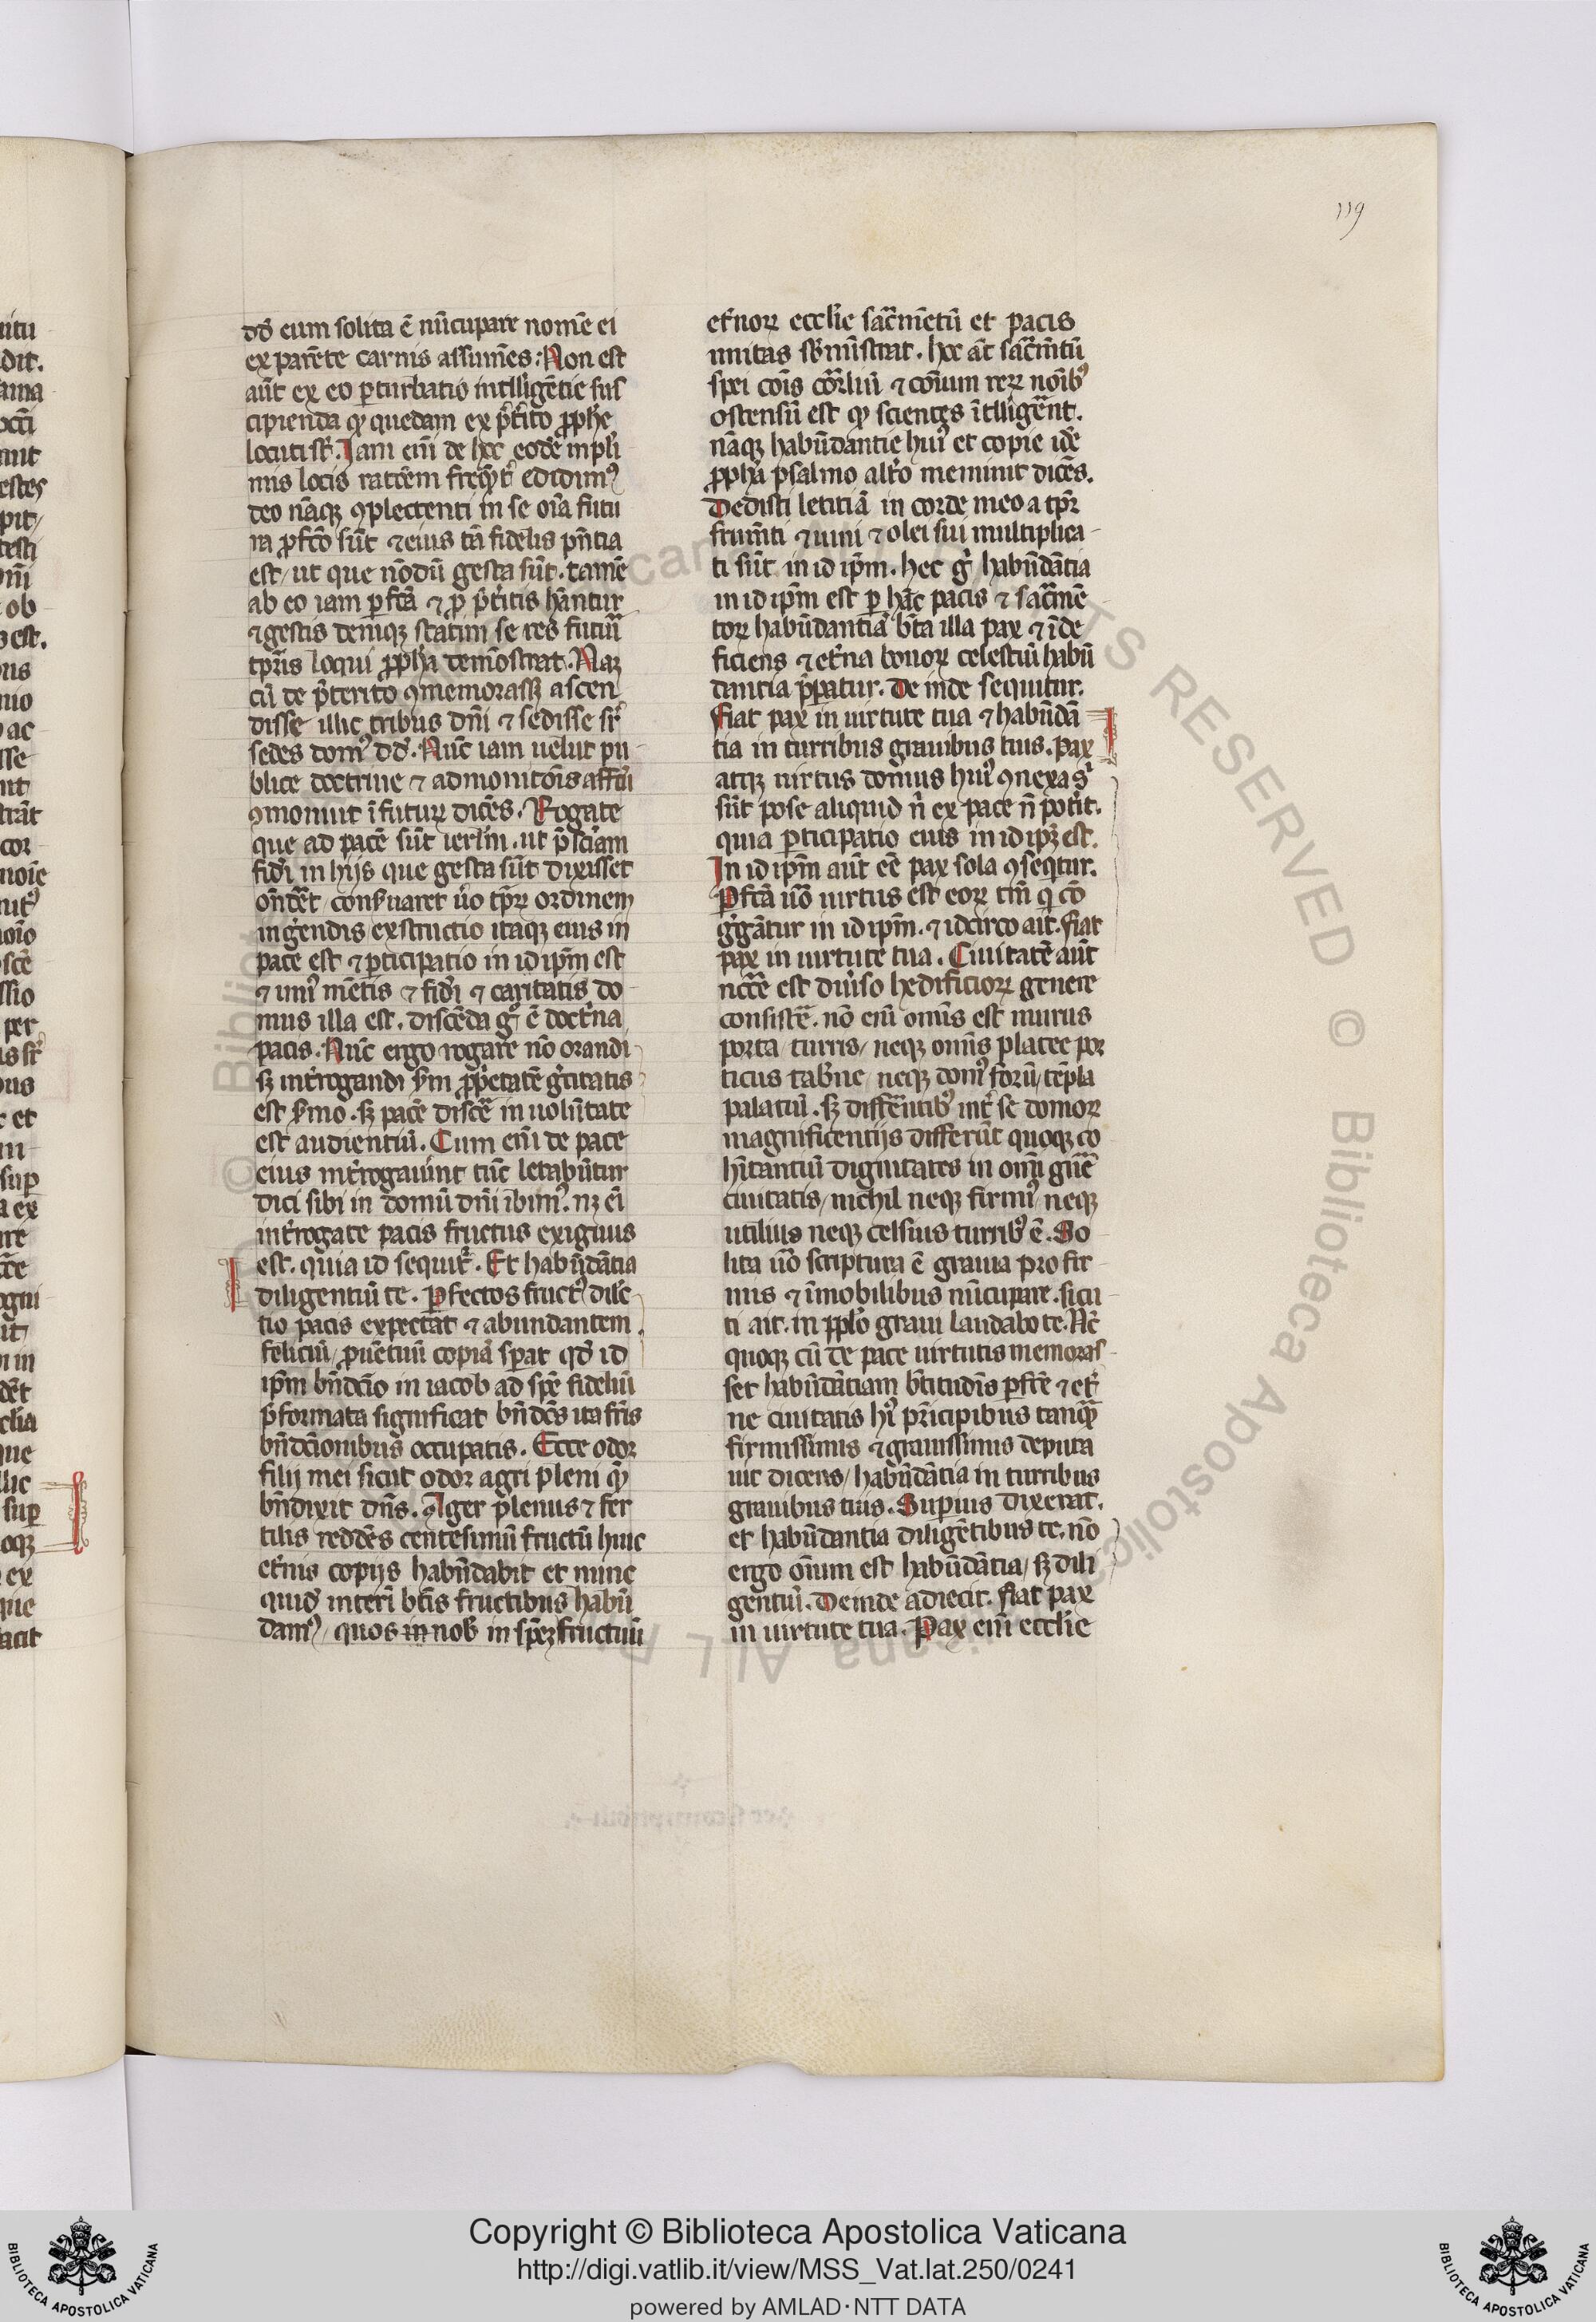 119
dd̕ eum solita ē nūcupare nomē ei
ex parēte carnis assumēs: Non est
aūt ex eo ꝑturbatio intlligētie sus
cipienda qꝫ quedam ex p̄t̕ito ꝓph̕e
locuti st̕. Jam eni̅ de hoc eodē in pl̕i
mis locis ratōem freq̄ꝫt̕ edidim᷒
deo nāqꝫ ꝯplectenti in se oi̅a futu
ra ꝓfco̅ su̅t ⁊ eius tā fidelis pn̄tia
est / ut que nōdū gesta su̅t. tamē
ab eo iam ꝑfcā ⁊ ꝓ p̄t̕itis hn̄tur
⁊ gestis deniqꝫ statim se res futuri̅
tp̄ris loqui ꝓph̕a demōstrat. Naꝫ
cū de p̄terito ꝯmemorassꝫ ascen
disse illic tribus dn̄i ⁊ sedisse st̕
sedes dom᷒ dd̕. Nūc iam uelut pu
blice doctrine ⁊ admonitōis affcū
ꝯmonuit i̅ futurꝫ dicēs. Rogate
que ad pacē su̅t ierl̕m. ut p̄sciam
fidei in hijs que gesta su̅t dixisset
on̄dēt / conẜuaret ūo tp̄rꝫ ordinem
in gerendis exstructio itaqꝫ eius in
pace est ⁊ ꝑticipatio in id ip̄m est
⁊ uni᷒ mētis ⁊ fidei ⁊ caritatis do
mus illa est. discēda g̊ ē doct̕na
pacis. Nūc ergo rogare nō orandi
sꝫ int̕rogandi ẜm ꝓp̕etatē g̕citatis
est ẜmo. sꝫ pacē discē in uolūtate
est audientiū. Cum eni̅ de pace
eius int̕rogauint tūc letabūtur
dici sibi in domū dn̄i ibim᷒. nꝫ ei̅
int̕rogate pacis fructus exiguus
est. quia id sequit̕. Et habūdātia
diligentiū te. Perfectos fruct᷒ dilc̕
tio pacis expectat ⁊ abundantem
feliciū / ꝓuētuū copiā sꝑat qd̕ id
ip̄m bn̄dcio in iacob ad spē fideliū
p̄formata significat bn̄dcēs ita fr̄is
bn̄dcionibus occupatis. Ecce odor
filij mei sicut odor agri pleni quē
bn̄dixit dn̄s. Ager plenus ⁊ fer
tilis reddēs centesimū fructū huic
et̕nis copijs habūdabit et nunc
quid̕ interi̅ btīs fructibus habū
dam᷒ / quos in nob̕ in spēꝫ fructuū
et̕norꝫ eccl̕ie sac̄mētū et pacis
unitas sb̕mi̅strat. hoc āt sac̄mtū
spei coīs cōr̄liū ⁊ cōium rerꝫ noi̅b᷒
ostensū est qꝫ scientes i̅tlligerēnt.
nāqꝫ habūdantie hui᷒ et copie idē
ꝓph̕a psalmo alt̕o meminit dicēs.
Dedisti letitiā in corde meo a tp̄r
frumti ⁊ uini ⁊ olei sui multiplica
ti su̅t in id ip̄m. hec g̊ habūdātia
in id ip̄m est ꝑ hāc pacis ⁊ sac̄mē
torꝫ habūdantiā bt̄a illa pax ⁊ i̅de
ficiens ⁊ et̕na bonorꝫ celestiū habū
dantia p̄patur. De inde sequitur.
Fiat pax in uirtute tua ⁊ habūdā
tia in turribus grauibus tuis. Pax
atqꝫ uirtus domus hui᷒ ꝯnexa s̕
su̅t posse aliquid n̄ ex pace n̄ pot̕it.
quia ꝑticipatio eius in id ip̄ꝫ est.
In id ip̄m aūt eē pax sola ꝯseqtur.
Perfcā ūo uirtus est eorꝫ tm̄ q̕ cō
g̕gātur in id ip̄m. ⁊ idcirco ait. fiat
pax in uirtute tua. Ciuitatē aūt
nccē est diu̕so hedificiorꝫ genere
consistē. nō eni̅ omi̅s est murus
porta / turris / neqꝫ omi̅s platee por
ticus tab̕ne / neqꝫ dom᷒ forū / tēpla
palatiū. sꝫ diffēntib᷒ int̕ se domorꝫ
magnificentijs differūt quoqꝫ co
hi̅tantiū dignitates in omi̅ gn̄e
ciuitatis / nichil neqꝫ firmi᷒ neqꝫ
utilius neqꝫ celsius turrib᷒ ē. So
lita ūo scriptura ē grauia pro fir
mis ⁊ i̅mobilibus nūcupare. sicu
ti ait. in ppl̕o graui laudabo te. Nc̄
quoqꝫ cū de pace uirtutis memoras
set habūdātiam btītudi̅s ꝑfcē ⁊ et̕
ne ciuitatis hi᷒ p̄ncipibus tanqꝫ
firmissimis ⁊ grauissimis deputa
uit dicens / habūdātia in turribus
grauibus tuis. Superius dixerat.
et habūdantia diligētibus te. nō
ergo oi̅um est habūdātia / sꝫ dili
gentiū. Deinde adiecit. fiat pax
in uirtute tua. Pax eni̅ eccl̕ie
Copyright © Biblioteca Apostolica Vaticana
http://digi.vatlib.it/view/MSS_Vat.lat.250/0241
powered by AMLAD·NTT DATA